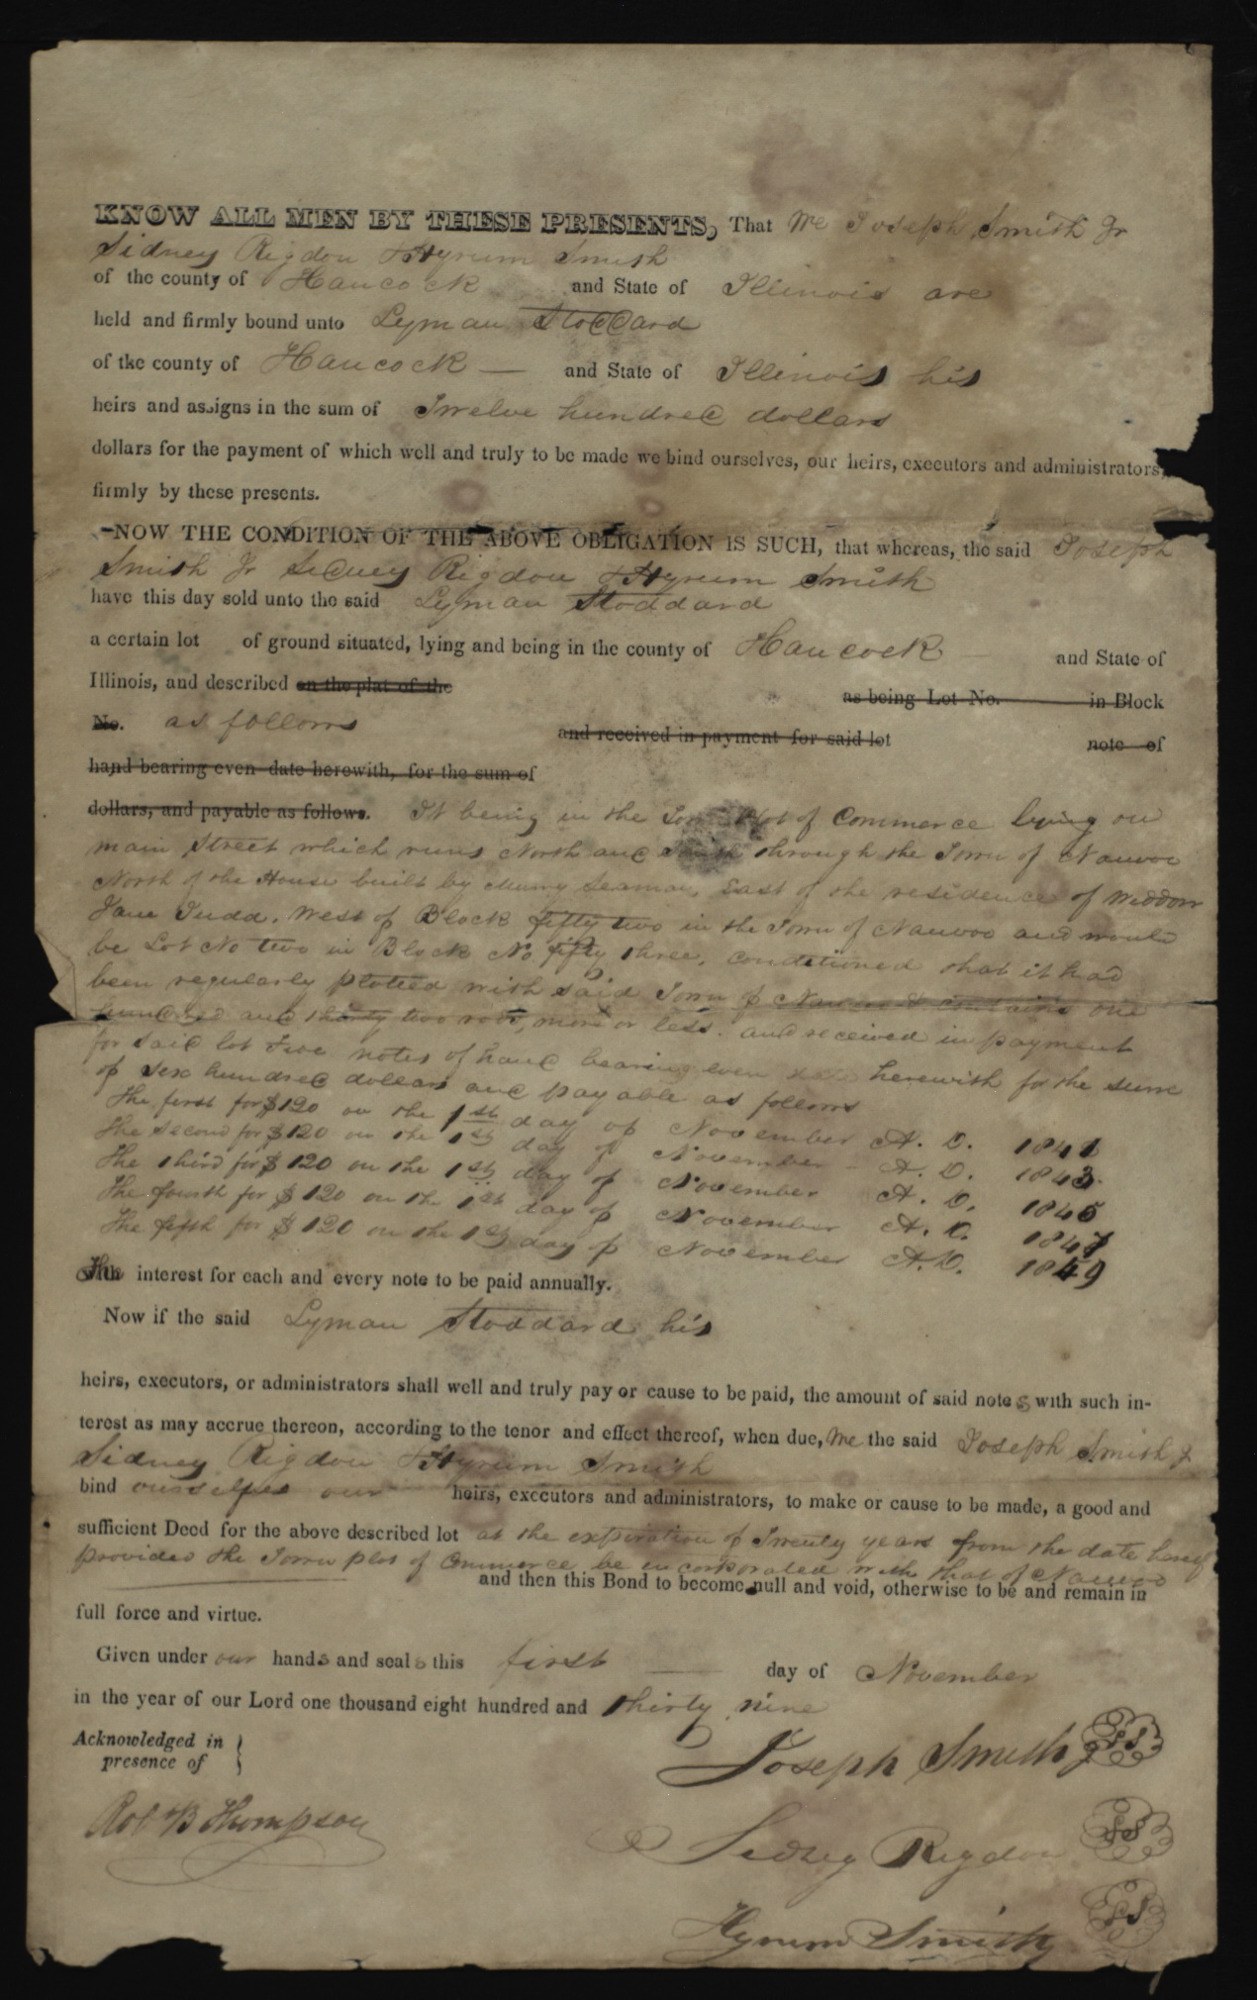 KNOW ALL MEN BY THESE PRESENTS, That We Joseph Smith Jr
Sidney Rigdon & Hyrum Smith
of the county of Hancock and State of Illinois are
held and firmly bound unto Lyman Stoddard
of tke county of Hancock — and State of Illinois his
heirs and assigns in the sum of Twelve hundred dollars
dollars for the payment of which well and truly to be made we bind ourselves, our heirs, executors and administrators,
firmly by these presents.
NOW THE CONDITION OF THE ABOVE OBLIGATION IS SUCH, that whereas, the said Joseph
Smith Jr Sidney Rigdon & Hyrum Smith
have this day sold unto the said Lyman Stoddard
a certain lot of ground situated, lying and being in the county of Hancock and State of
Illinois, and described on the plat of the as being Lot No. in Block
No. as follows and received in payment for said lot note of
hand bearing even date herewith, for the sum of
dollars, and payable as follows. It being in the Town Plot of Commerce lying on
main Street which runs North and South through the Town of Nauvoo
North of the House built by Seaman, East of the residence of Widdow
Jane Judd, West of Block fifty two in the Town of Nauvoo and would
be Lot No two in Block No fifty three, conditioned that it had
been regularly plotted with said Town of Nauvoo & contains one
hundred and thirty two rods, more or less. and received in payment
for said lot five notes of hand bearing even date herewith for the sum
of Six hundred dollars and payable as follows
The first for $120 on the 1st day of November A. D. 1841
The second for $120 on the 1st day of November A. D. 1843
The third for $120 on the 1st day of November A. D. 1845
The fourth for $120 on the 1st day of November A. D. 1847
The fifth for $120 on the 1st day of November A. D. 1849
The interest for each and every note to be paid annually.
Now if the said Lyman Stoddard his
heirs, executors, or administrators shall well and truly pay or cause to be paid, the amount of said notes with such in-
terest as may accrue thereon, according to the tenor and effect thereof, when due, We the said Joseph Smith Jr
Sidney Rigdon & Hyrum Smith
bind ourselves our heirs, executors and administrators, to make or cause to be made, a good and
sufficient Deed for the above described lot at the expiration of Twenty years from the date hereof
provided the Town plot of Commerce be incorporated with that of Nauvoo
and then this Bond to become null and void, otherwise to be and remain in
full force and virtue.
Given under our hands and seals this first day of November
in the year of our Lord one thousand eight hundred and thirty nine
Acknowledged in
presence of }
Joseph Smith Jr
Rob B Thompson
Sidney Rigdon
Hyrum Smith